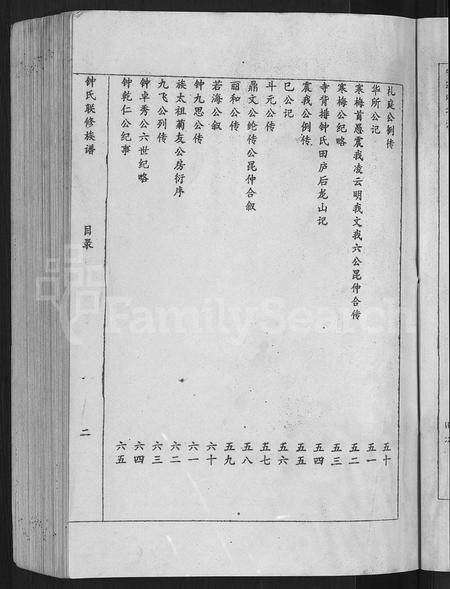 礼庭公别传 五十
华所公记 五一
寒梅首愿震我凌云明我文我六公昆仲合传 五二
寒梅公纪略 五三
寺背排钟氏田庐后龙山记 五四
震我公例传 五五
巳公记 五六
斗元公传 五七
鼎文公纶传公昆仲合叙 五八
丽和公传 五九
若海公叙 六十
钟九思公传 六一
族太祖菊友公房衍序 六二
九飞公列传 六三
钟卓秀公六世纪略 六四
钟乾仁公纪事 六五
钟氏联修族谱 目录 二
FamilySearch